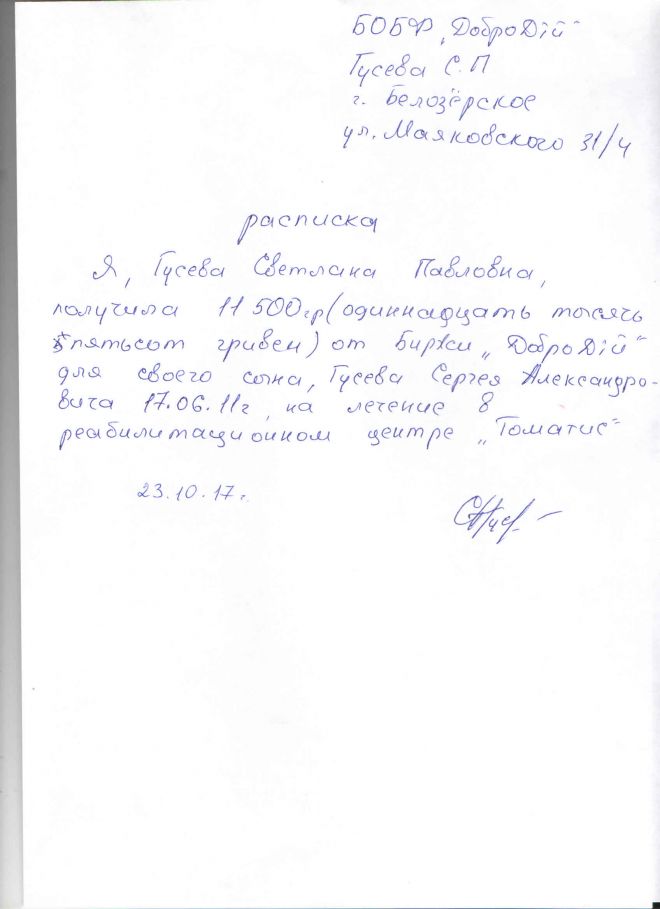 БОБФ „ДоброДій"
Гусева С.П
г. Белозёрское
ул. Маяковского 31/4
расписка
Я, Гусева Светлана Павловна,
получила 11 500гр (одиннадцать тысячь
пятьсот гривен) от Биржи „ДоброДій"
для своего сына, Гусева Сергея Александро-
вича 17.06.11г, на лечение в
реабилитационном центре „Томатис"
23.10.17г.